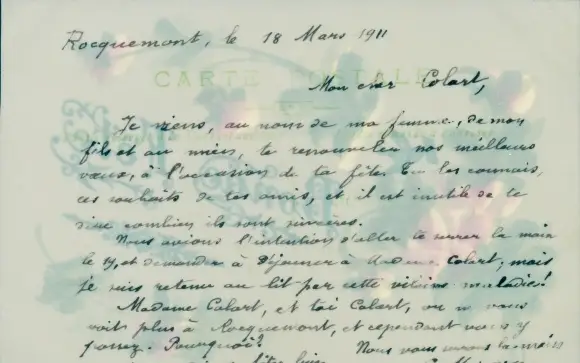 Rocquemont, le 18 Mars 1911
CARTE POSTALE
Mon cher Colart,
Je viens, au nom de ma femme, de mon
fils et au mien, te renouveler nos meilleurs
vœux, à l'occasion de ta fête. Tu les connais,
ces souhaits de tes amis, et il est inutile de te
dire combien ils sont sincères.
Nous avions l'intention d'aller te serrer la main
le 19, et demander à déjeuner à Colart, mais
je suis retenu au lit par cette maladie!
Madame Colart, et toi Colart, on ne vous
voit plus à Rocquemont, et cependant vous y
passez. Pourquoi? Nous vous